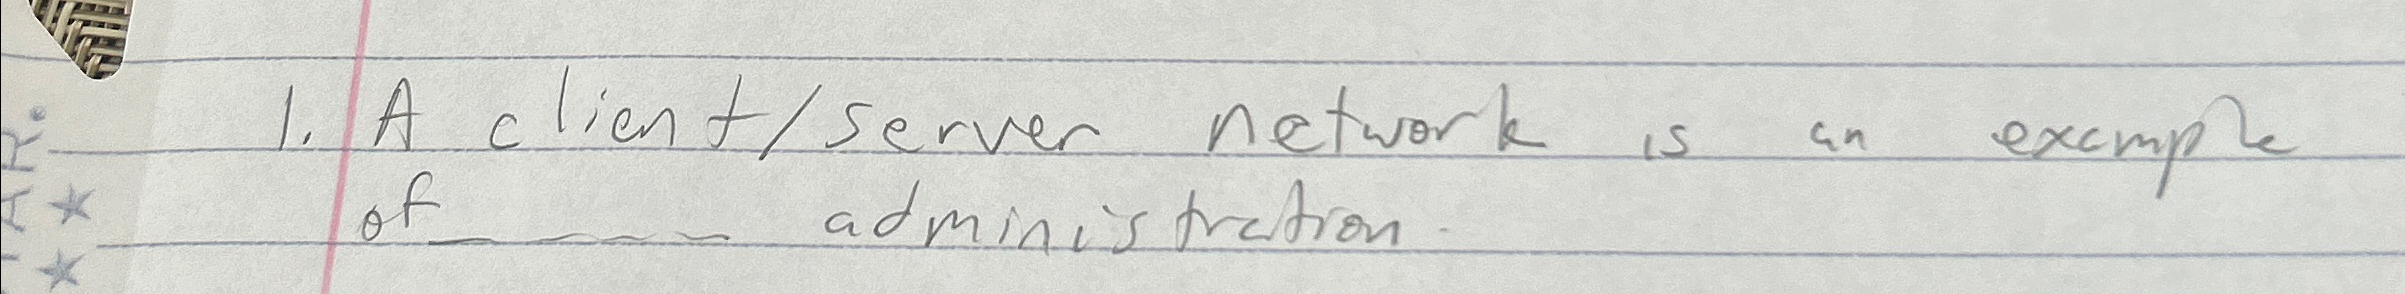 1. A client/server network is an example
of ____ administration.
AR.